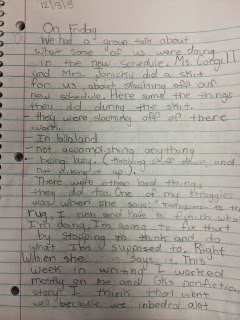 12/3/8
On Friday
We had a group talk about
what some of us were doing
in the new schedule. Ms. Corgill
and Mrs. Janicky did a skit
for us about slacking off our
new schedule. Here some the things
they did during the skit.
- they were slacking off of there
work.
- In lalaland
- not accomplishing anything
- being lazy. (throwing stuff down and
not picking it up).
There were other bad things
they did too. One of my struggles
was when she says " to the
rug, I rush and have to finish what
I'm doing. I'm going to fix that
by stopping to think and do
what I'm supposed to. Right
When she says it. This
week in writing I worked
mostly on me and nonfiction
story. I think that went
well because we alot